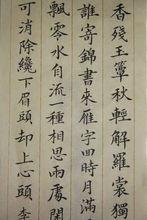 香殘玉簟秋輕解羅裳獨
誰寄錦書來雁字回時月滿
飄零水自流一種相思兩處閒
可消除纔下眉頭却上心頭李